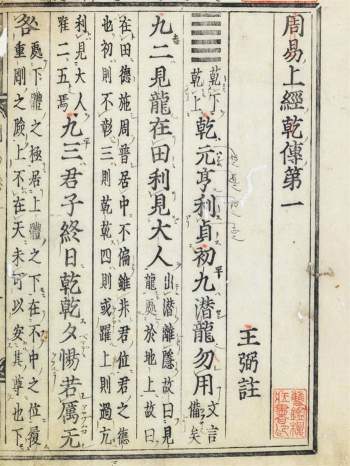 周易上經乾傳第一
王弼註
䷀ 乾下乾上 乾元亨利貞初九潛龍勿用 文言備矣
九二見龍在田利見大人 出潛離隱故曰見龍處於地上故曰
在田德施周普居中不偏雖非君位君之德
也初則不彰三則乾乾四則或躍上則過亢
利見大人唯二五焉 九三君子終日乾乾夕惕若厲无
咎 處下體之極居上體之下在不中之位履
重剛之險上不在天未可以安其尊也下